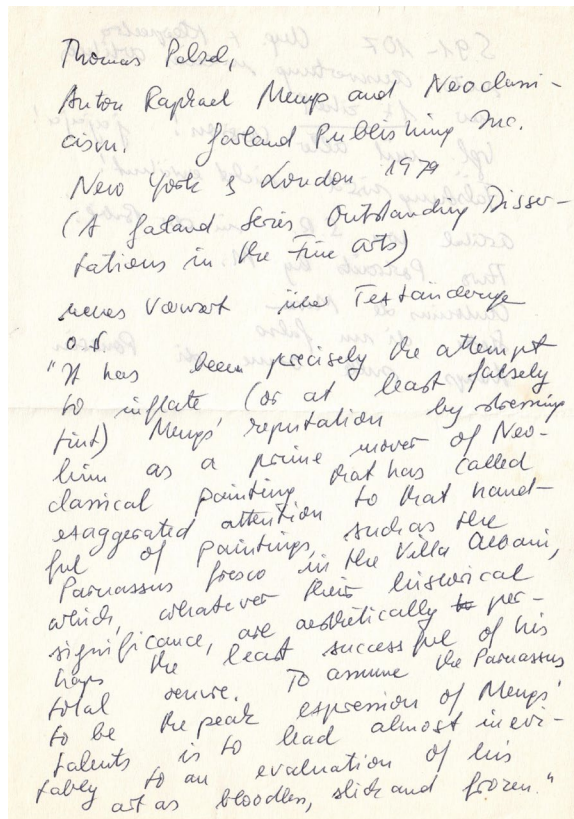 Thomas Pelzel,
Anton Raphael Mengs and Neoclassi-
cism. Garland Publishing Inc.
New York & London 1979
(A Garland Series Outstanding Disser-
tations in the Fine arts)
neues Vorwort über Textänderungen
"It has been precisely the attempt
to inflate (or at least falsely
tint) Mengs' reputation by stressing
him as a prime mover of Neo-
classical painting that has called
exaggerated attention to that hand-
ful of paintings, such as the
Parnassus fresco in the Villa Albani,
which, whatever their historical
significance, are aesthetically per-
haps the least successful of his
total oeuvre. To assume the Parnassus
to be the peak expression of Mengs'
talents is to lead almost inevi-
tably to an evaluation of his
art as bloodless, slick and frozen."